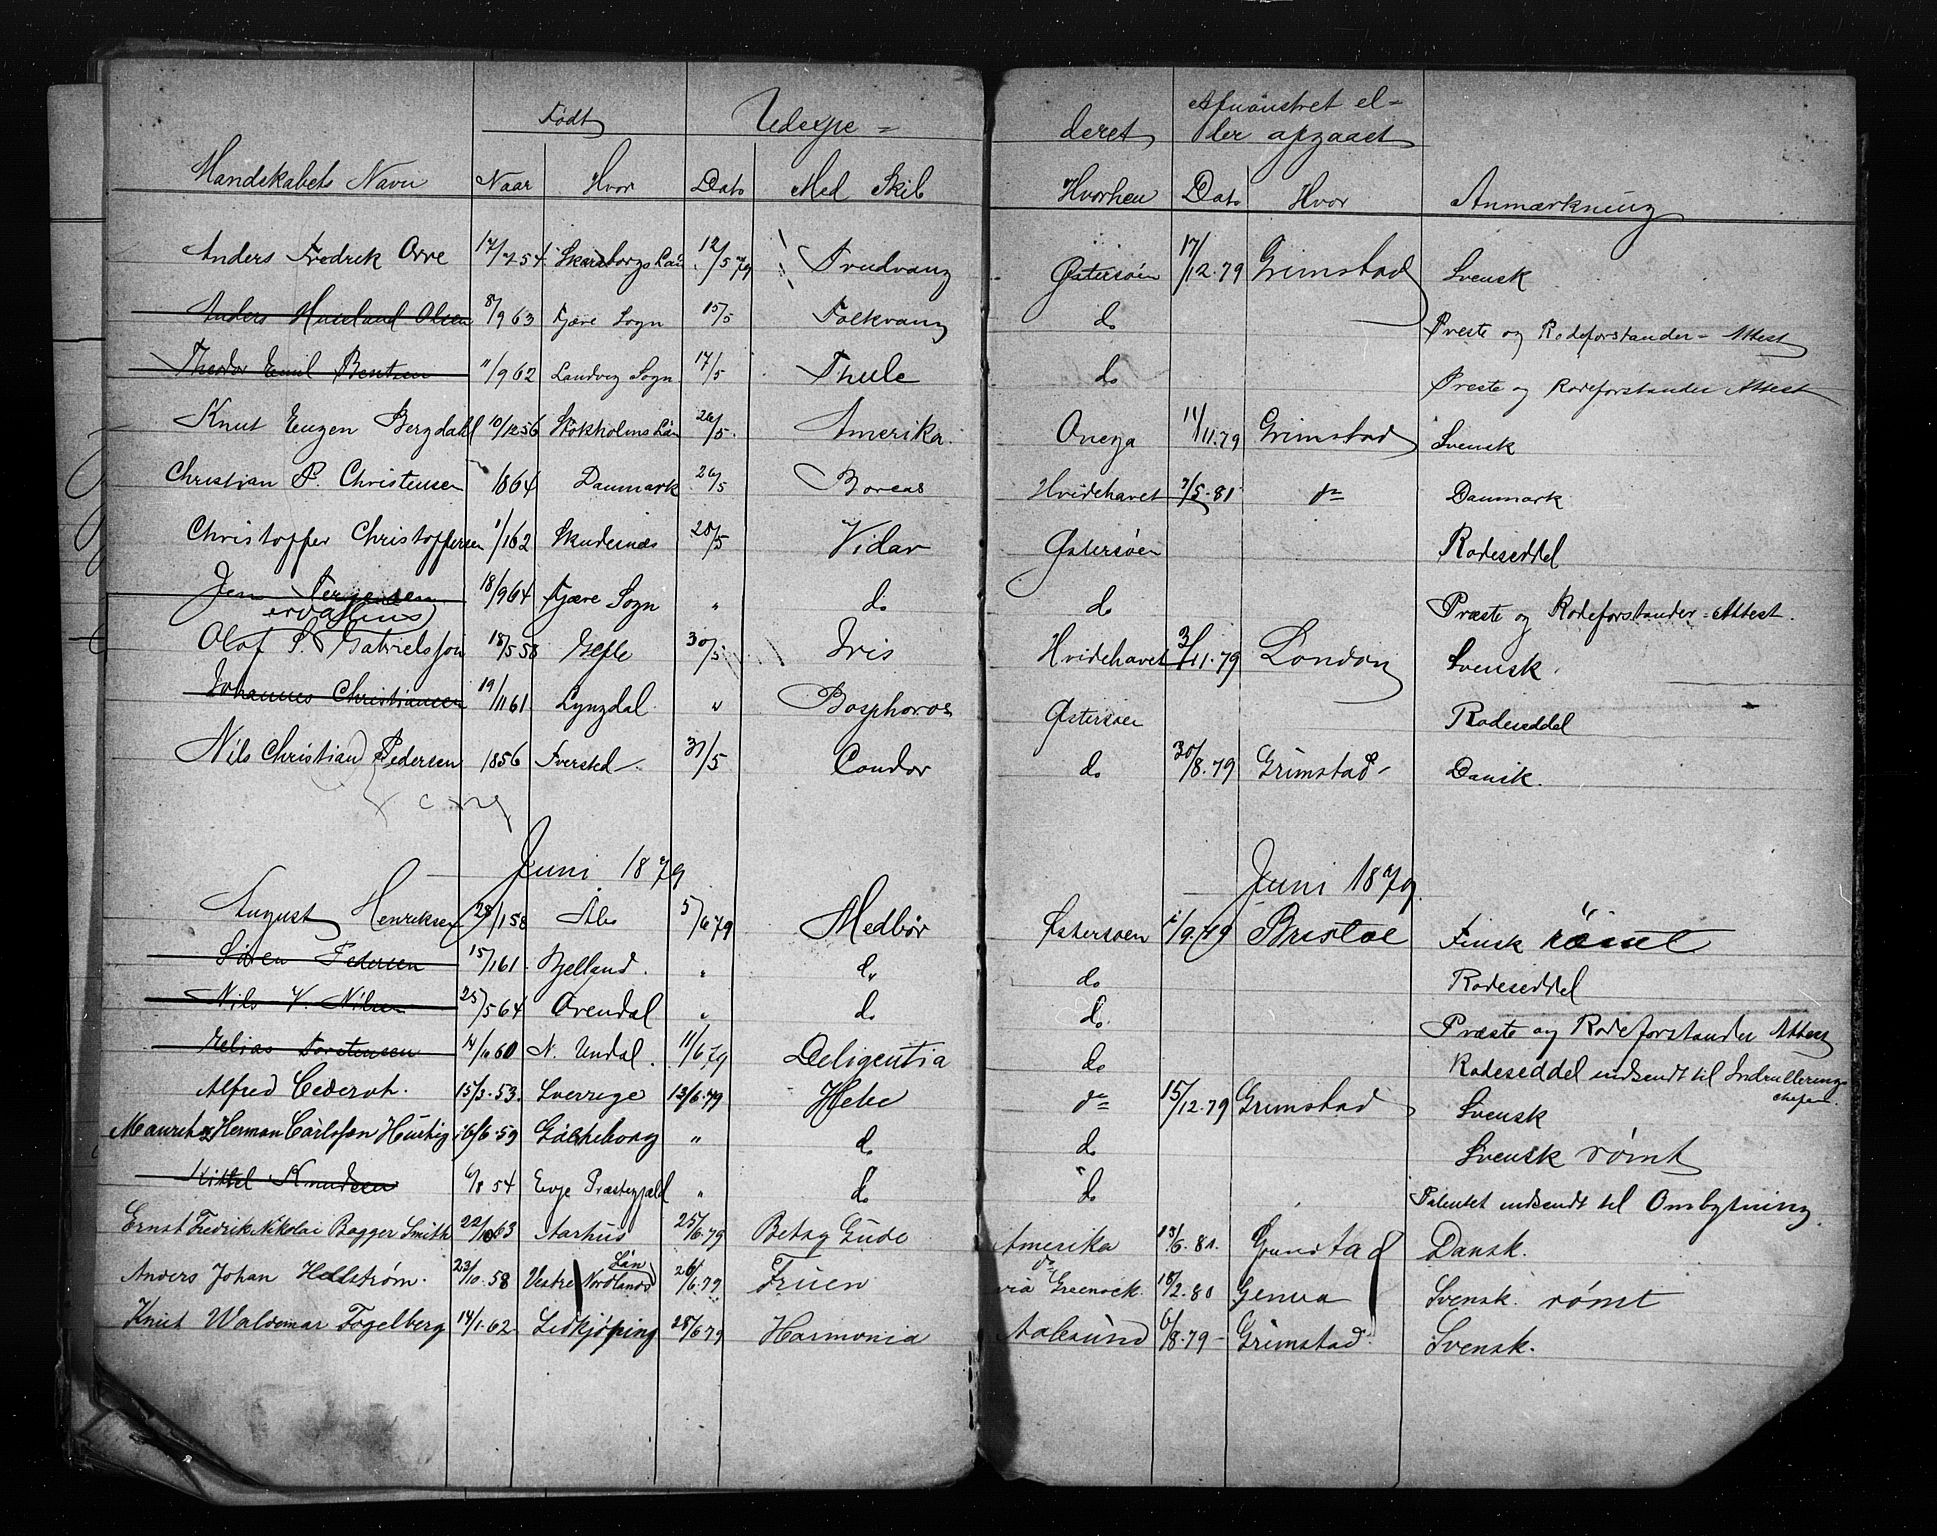 Født Udexpe = deret Afmønstret el=
ler afgaaet
Mandskabets Navn Naar Hvor Dato Med Skib Hvorhen Dato Hvor Anmærkning
Anders Fredrik Orre 17/7 54 Skaraborgs Län 12/5 79 Trudvang Østersøen 17/12.79 Grimstad Svensk
Anders Olsen 8/9 63 Fjære Sogn 15/5 Folkvang do Præste og Rodeforstander = Attest
Theodor Emil Bentsen 11/9 62 Landvig Sogn 17/5 Thule do Præste og Rodeforstander Attest
Knut Eugen Bergdahl 10/12 56 Stokholms Län 26/5 Amerika Onega 11/11.79 Grimstad Svensk
Christian P. Christensen 1864 Danmark 26/5 Boreas Hvidehavet 7/5.81 do Danmark
Christoffer Christoffersen 1/1 62 Skudesnæs 28/5 Vidar Østersøen Rodeseddel
Jens Tergesen 18/9 64 Fjære Sogn " do do Præste og Rodeforstander = Attest.
Olof S. Gabrielsson 18/5 58 Gefle 30/5 Iris Hvidehavet 3/11.79 London Svensk.
Johannes Christiansen 19/11 61 Lyngdal " Bosphoros Østersøen Rodeseddel
Nils Christian Pedersen 1856 Fversted 31/5 Condor do 30/8.79 Grimstad Dansk.
Juni 1879 Juni 1879
August Henriksen 28/1 58 Åbo 5/6 79 Medbør Østersøen /9 79 Bristol Finsk rømt
Søren Pedersen 15/1 61 Bjelland. " do do Rodeseddel
Nils V. Nilsen 25/5 64 Arendal " do do Præste og Rodeforstander Attest
Helias Torstensen 60 N. Undal. 11/6 79 Deligentia do Rodeseddel indsendt til Indrullerings
chefen.
Alfred Cederot. 15/3.53. Sverrige 13/6.79 Hebe do 15/12.79 Grimstad Svensk
Mauritz Herman Carlsson Hurtig 16/6.59 Gøtheborg " do do Svensk rømt
Kittel Knudsen 6/8 54 Evje Præstegjæld " do do Patentet indsendt til Ombytning.
Ernst Fredrik Nikolai Bagger Smith 22/10 63 Aarhus 25/6.79 Betsy Gude Amerika 13/6.81. Grimstad Dansk.
Anders Johan Hellstrøm. 23/10.58 Vestre Nordlands Län 26/6.79 Fruen do via Greenock. 18/2.80 Genua Svensk. rømt
Knut Waldemar Fogelberg 14/1.62 Lidkjöping 28/6 79 Harmonia Aalesund 6/8.79 - Grimstad. Svensk.